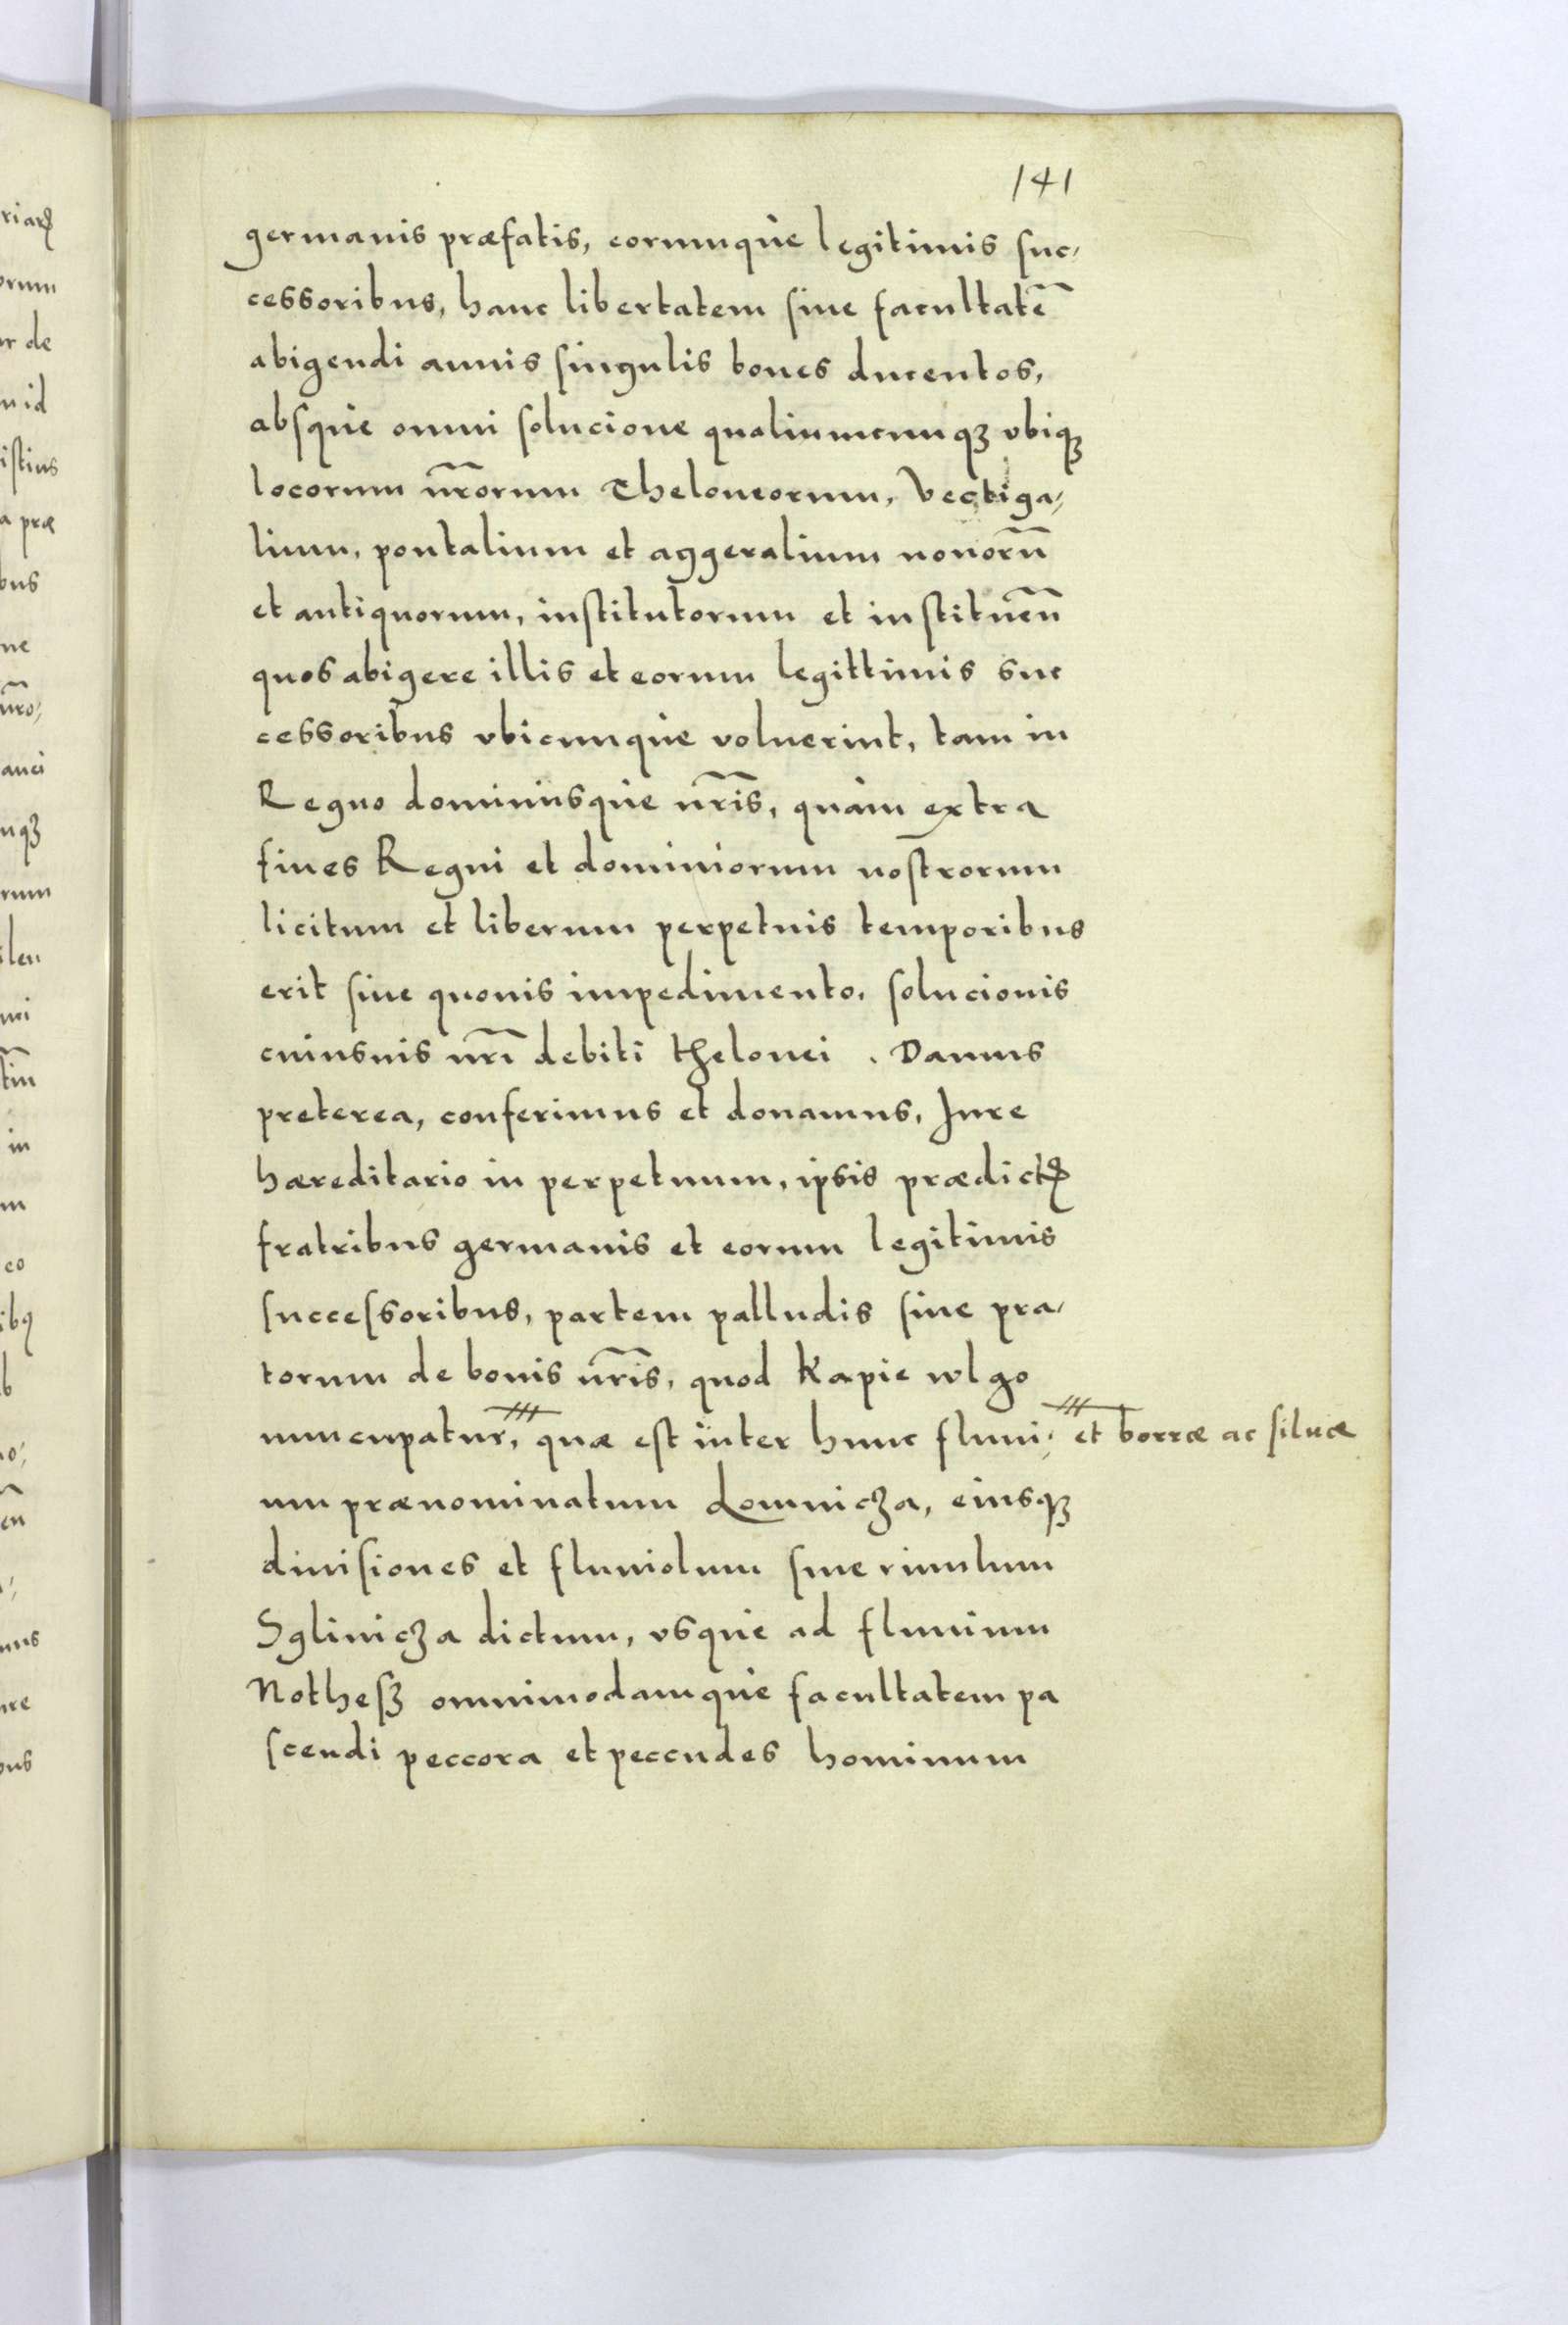 141
germanis præfatis, eorumquè legitimis suc-
cessoribus, hanc libertatem siue facultatē
abigendi annis singulis boues ducentos,
absquè omni solucione qualiumcunqꝫ vbiqꝫ
locorum nr̄orum Theloneorum, Vectiga-
lium, pontalium et aggeralium nouorū
et antiquorum, institutorum et instituēn̄
quos abigere illis et eorum legittimis suc
cessoribus vbicunquè voluerint, tam in
Regno dominiisquè nr̄is, quàm extra
fines Regni et dominiorum nostrorum
licitum et liberum perpetuis temporibus
erit siue quouis impedimento, solucionis
cuiusuis nr̄i debiti thelonei. Damus
preterea, conferimus et donamus, Jure
hæreditario in perpetuum, ipsis prædictꝭ
fratribus germanis et eorum legitimis
successoribus, partem palludis siue pra-
torum de bonis nr̄is, quod Kapie wlgo
nuncupatur, quæ est inter hunc fluui- et borræ ac siluæ
um prænominatum Lomnicza, eiusqꝫ
diuisiones et fluuiolum siue riuulum
Sglinicza dictum, vsquè ad fluuium
Nothesz omnimodamquè facultatem pa
scendi peccora et peccudes hominum
riarꝭ
orum
ur de
n id
istius
a præ
bus
ne
nr̄o-
anci
nqꝫ
rum
ilen
mi
in
m
eo
ibꝯ
b
en
nus
ure
ous